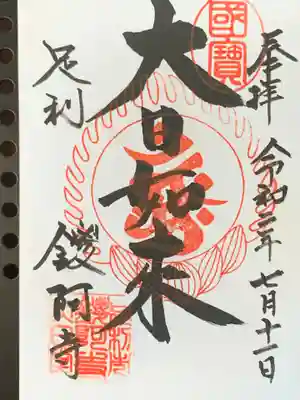 奉拝 令和二年 七月十一日
國寶
大日如来
足利 鑁阿寺